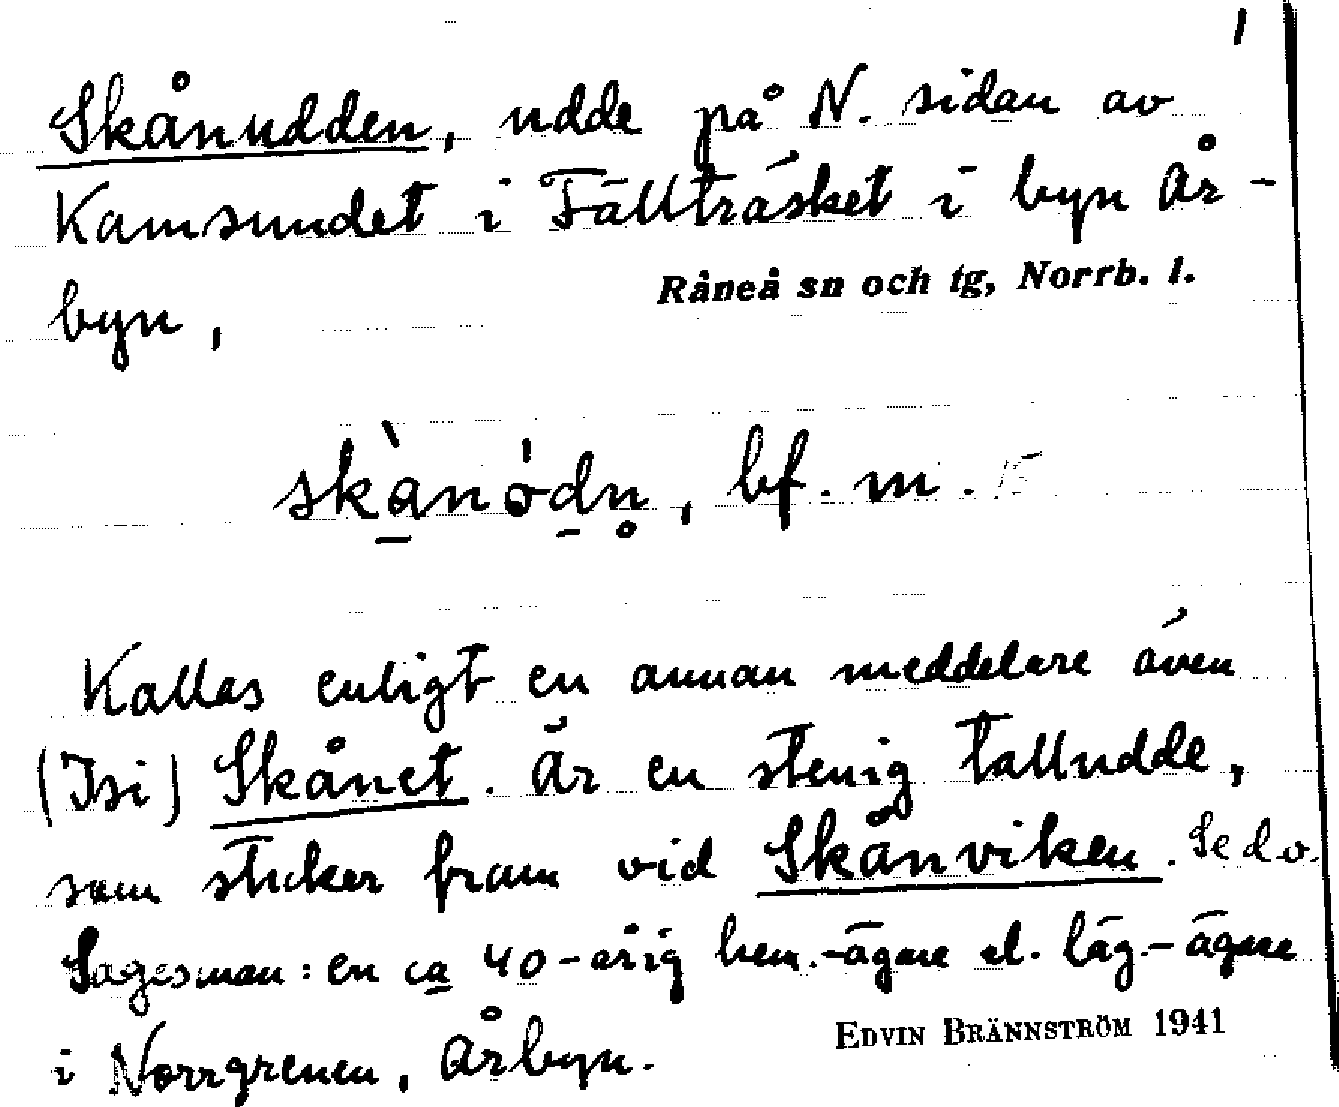 1
Skånudden, udde på N. sidan av
Kamsundet i Fällträsket i byn År-
byn,
Råneå sn och tg, Norrb. l.
skànódn̥, bf. m.
Kallas enligt en annan meddelare även
(Isi) Skånet. Är en stenig talludde,
som sticker fram vid Skånviken. Se d.o.
Sagesman: en ca 40-årig hem.-ägare el. läg.-ägare
i Norrgrenen, Årbyn.
EDVIN BRÄNNSTRÖM 1941